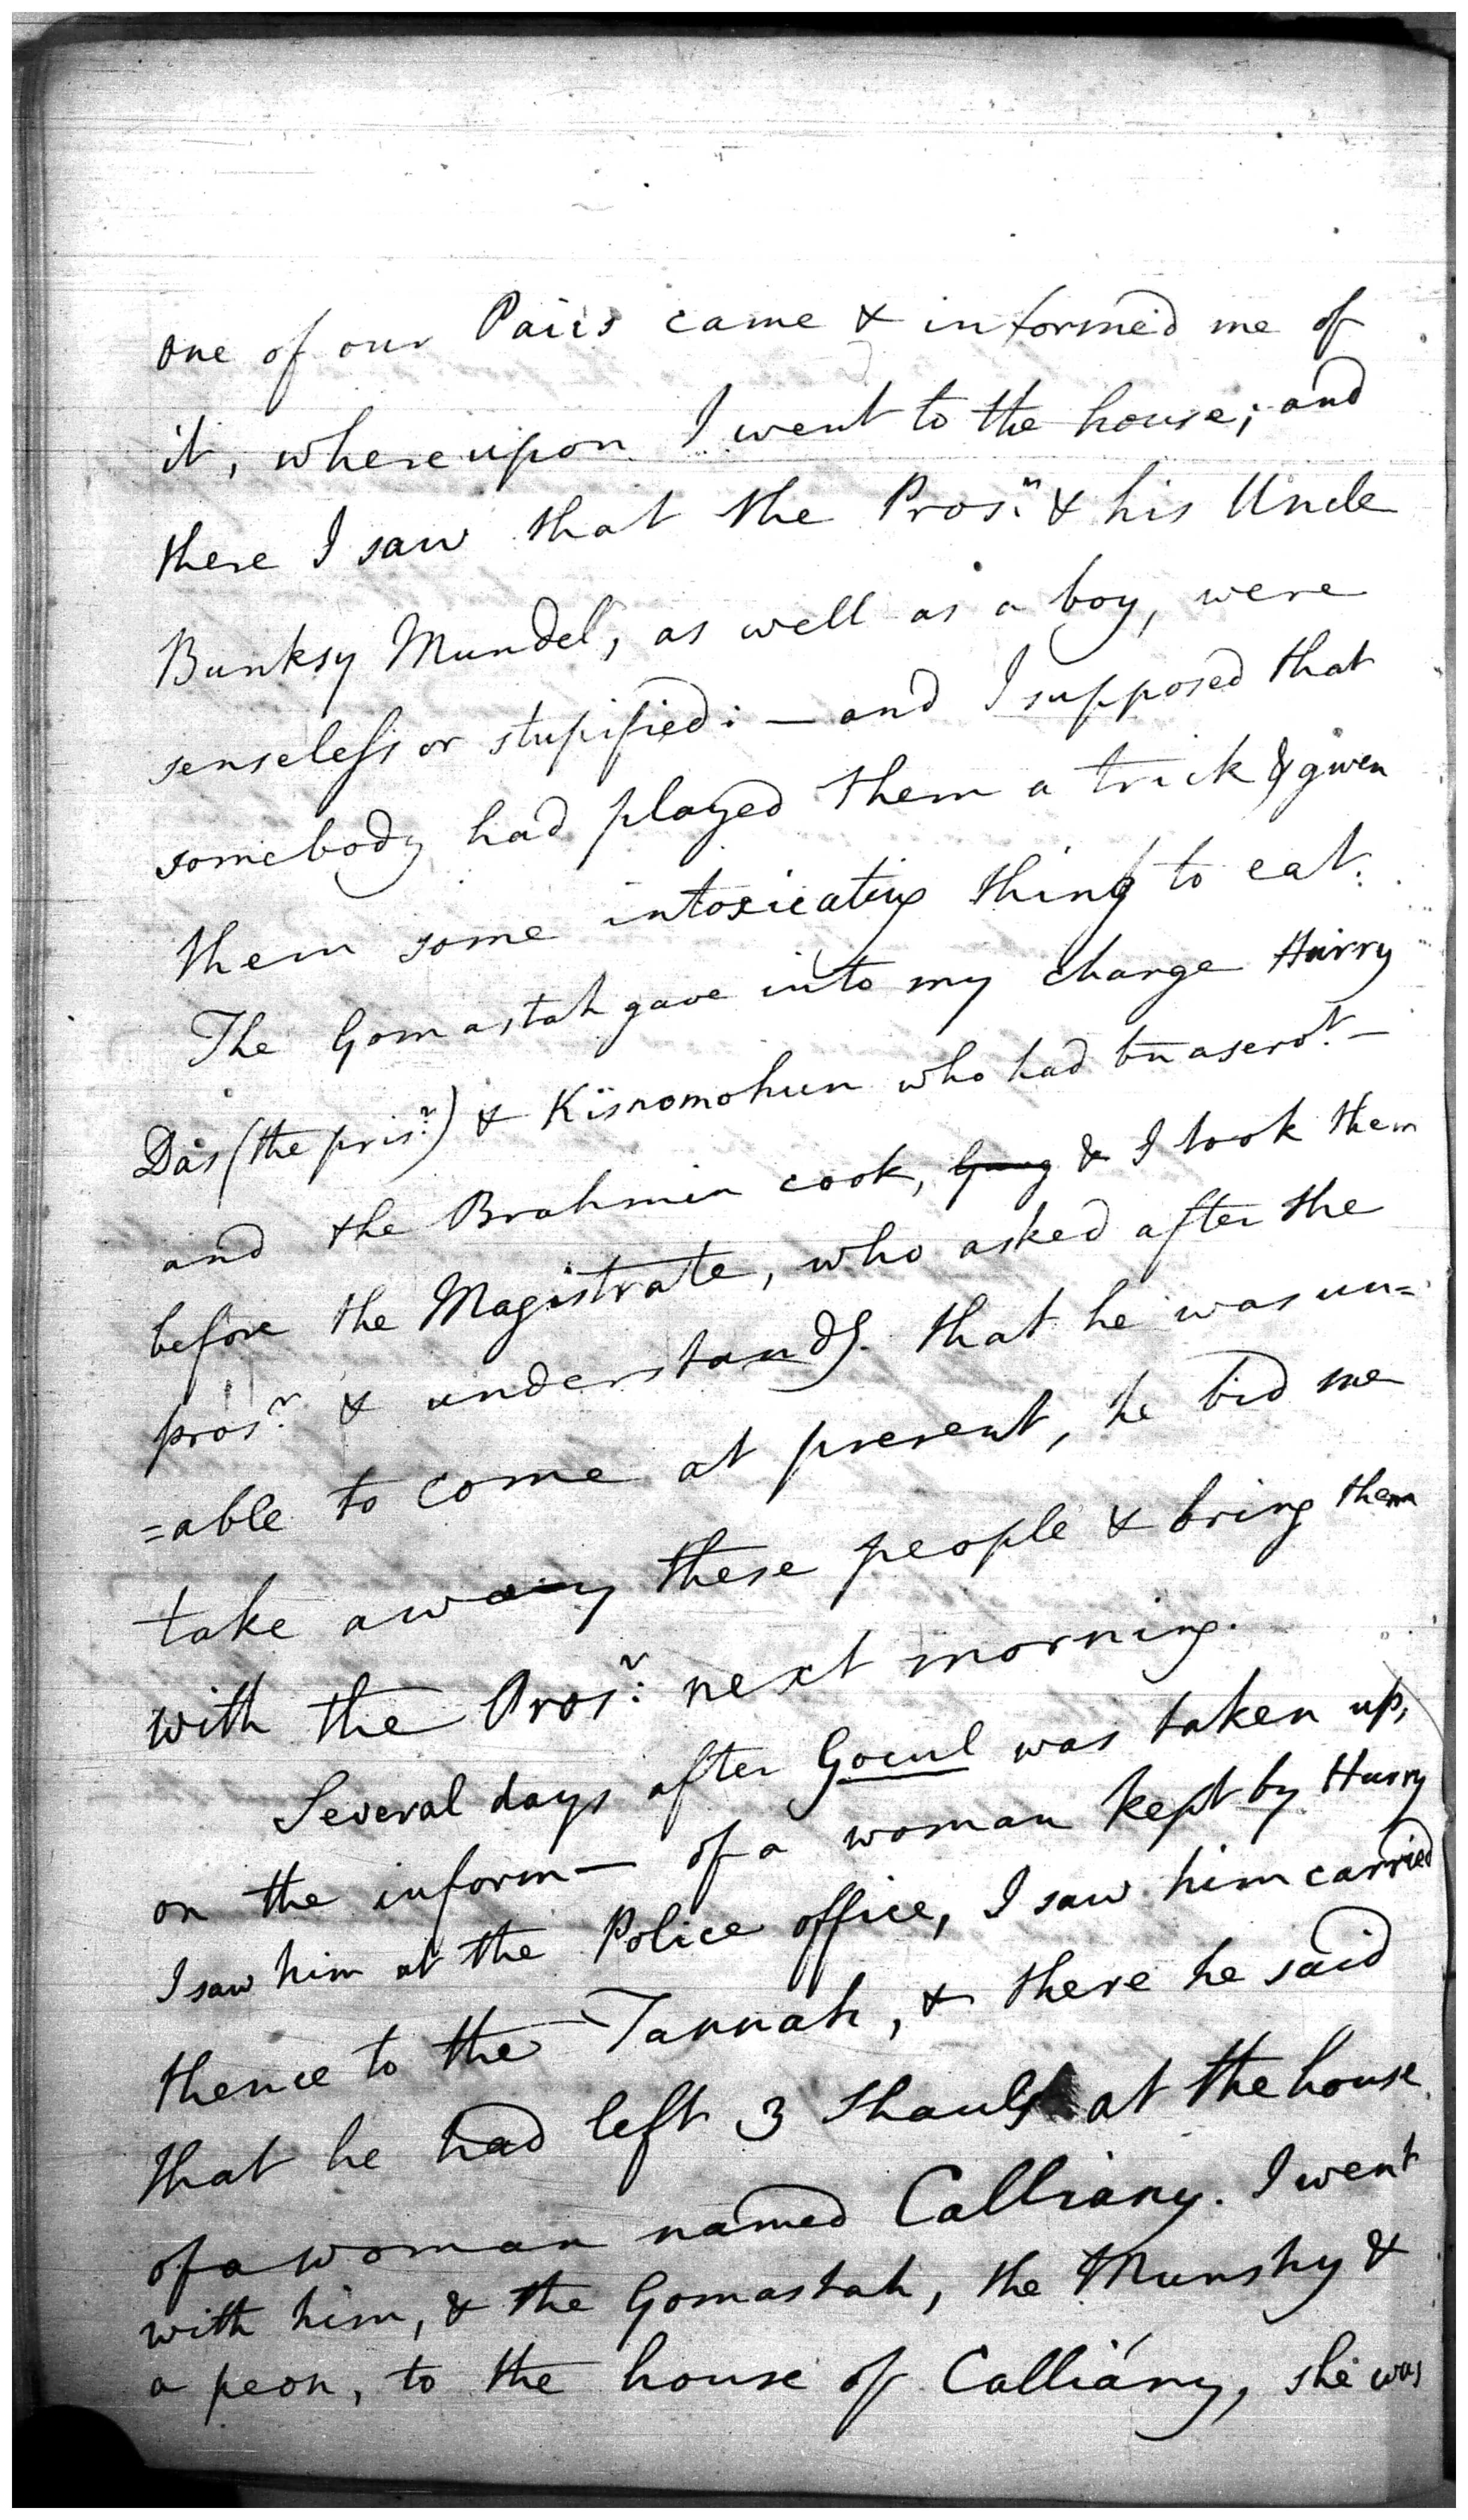 one of our Paiis came & informed me of
it, whereupon I went to the house; and
there I saw that the Pros.r & his Uncle
Bunksy Mundel, as well as a boy, were
senseless or stupified: — and I supposed that
somebody had played them a trick & given
them some intoxicating thing to eat.
The Gomastah gave into my charge Hurry
Das (the pris.r) & Kisnomohun who had bn a servt. —
and the Brahmin cook, & I took them
before the Magistrate, who asked after the
pros.r & understandg. that he was un=
=able to come at present, he bid me
take away these people & bring them
with the Pros.r next morning.
Several days after Gocul was taken up,
on the inform— of a woman kept by Hurry
I saw him at the Police office, I saw him carried
thence to the Tannah, & there he said
that he had left 3 Shauls at the house
of a woman named Calliany. I went
with him, & the Gomastah, the Munshy &
a peon, to the house of Calliány, she was